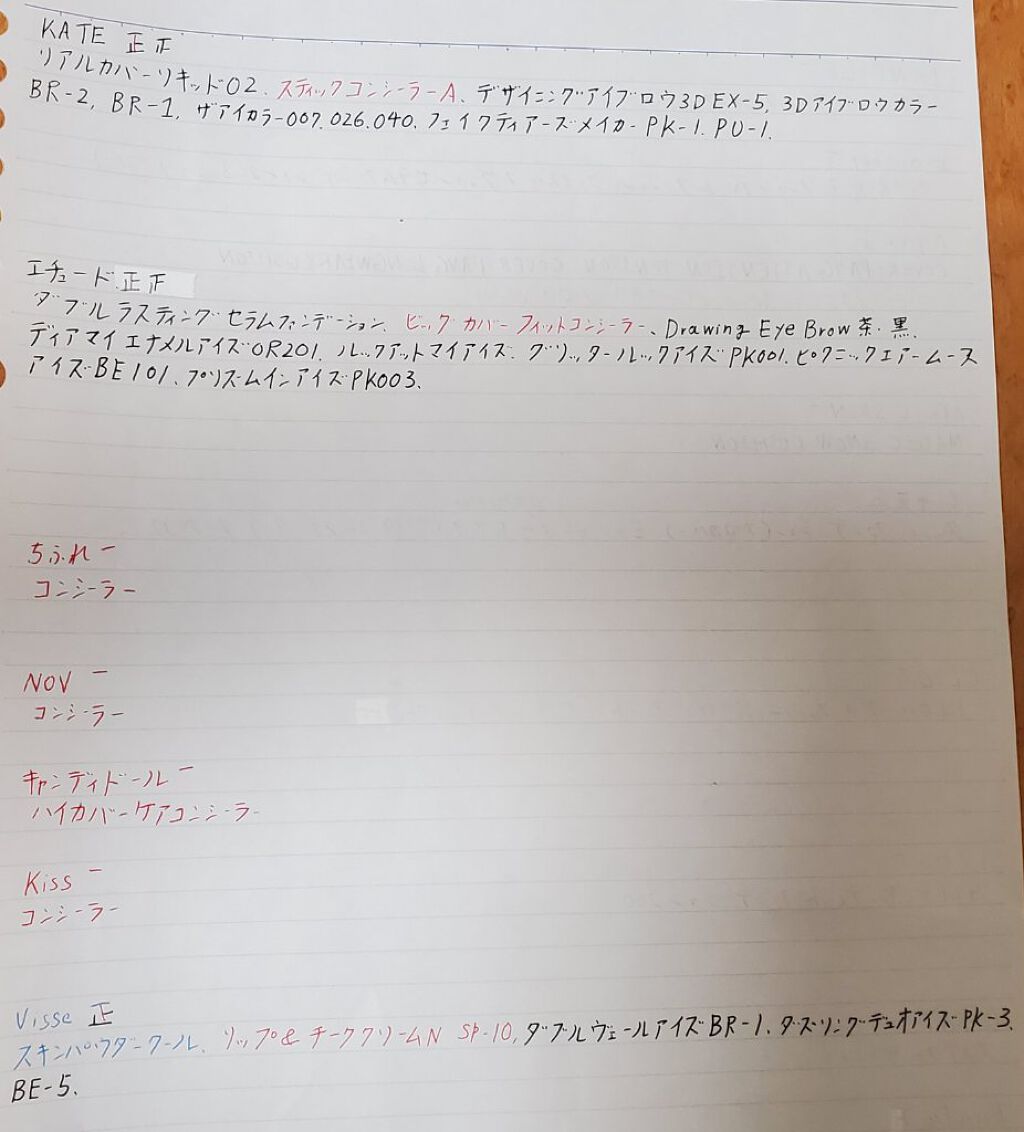 KATE 正正
リアルカバーリキッド02、スティックコンシーラーA、デザイニングアイブロウ3D EX-5, 3Dアイブロウカラー
BR-2, BR-1, ザアイカラー007.026.040.フェイクティアーズメイカーPK-1.PU-1.
エチュード 正正
ダブルラスティングセラムファンデーション、ビッグカバーフィットコンシーラー、Drawing Eye Brow 茶・黒.
ディアマイエナメルアイズOR201.ルックアットマイアイズ.グリッタールックアイズPK001.ピクニックエアームース
アイズBE101、プリズムインアイズPK003.
ちふれ 一
コンシーラー
NOV 一
コンシーラー
キャンディドール 一
ハイカバーケアコンシーラー
Kiss 一
コンシーラー
Visse 正
スキンパウダークール、リップ&チーククリームN SP-10,ダブルヴェールアイズBR-1.ダズリングデュオアイズPK-3.
BE-5.